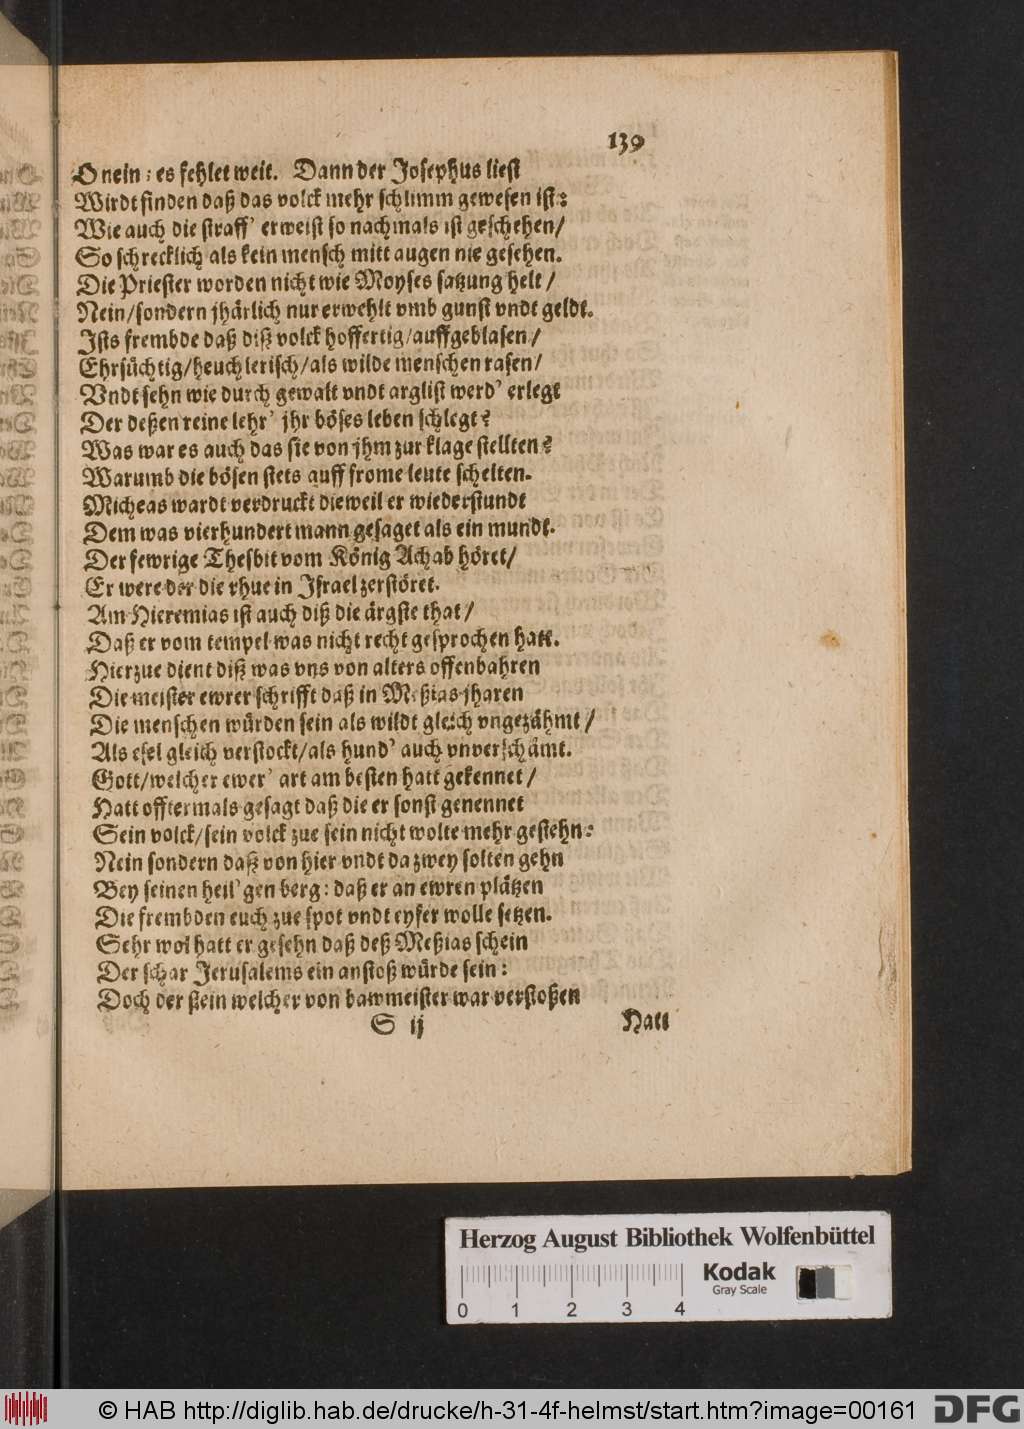 139
O nein: es fehlet weit. Dann der Josephus liest
Wirdt finden daß das volck mehr schlimm gewesen ist:
Wie auch die straff' erweist so nachmals ist geschehen/
So schrecklich als kein mensch mitt augen nie gesehen.
Die Priester worden nicht wie Moyses satzung helt/
Nein/sondern jhärlich nur erwehlt vmb gunst vndt geldt.
Ists frembde daß diß volck hoffertig/auffgeblasen/
Ehrsüchtig/heuchlerisch/als wilde menschen rasen/
Vndt sehn wie durch gewalt vndt arglist werd' erlegt
Der deßen reine lehr' jhr böses leben schlegt?
Was war es auch das sie von jhm zur klage stellten?
Warumb die bösen stets auff frome leute schelten.
Micheas wardt verdruckt dieweil er wiederstundt
Dem was vierhundert mann gesaget als ein mundt.
Der fewrige Thesbit vom König Achab höret/
Er were der die rhue in Israel zerstöret.
Am Hieremias ist auch diß die ärgste that/
Daß er vom tempel was nicht recht gesprochen hatt.
Hierzue dient diß was vns von alters offenbahren
Die meister ewrer schrifft daß in Meßias jharen
Die menschen würden sein als wildt gleich vngezähmt/
Als esel gleich verstockt/als hund' auch vnverschämt.
Gott/welcher ewer' art am besten hatt gekennet/
Hatt offtermals gesagt daß die er sonst genennet
Sein volck/sein volck zue sein nicht wolte mehr gestehn:
Nein sondern daß von hier vndt da zwey solten gehn
Bey seinen heil'gen berg: daß er an ewren plätzen
Die frembden euch zue spot vndt eyfer wolle setzen.
Sehr wol hatt er gesehn daß deß Meßias schein
Der schar Jerusalems ein anstoß würde sein:
Doch der stein welcher von bawmeister war verstoßen
S ij Hatt
Herzog August Bibliothek Wolfenbüttel
Kodak
Gray Scale
0 1 2 3 4
© HAB http://diglib.hab.de/drucke/h-31-4f-helmst/start.htm?image=00161 DFG